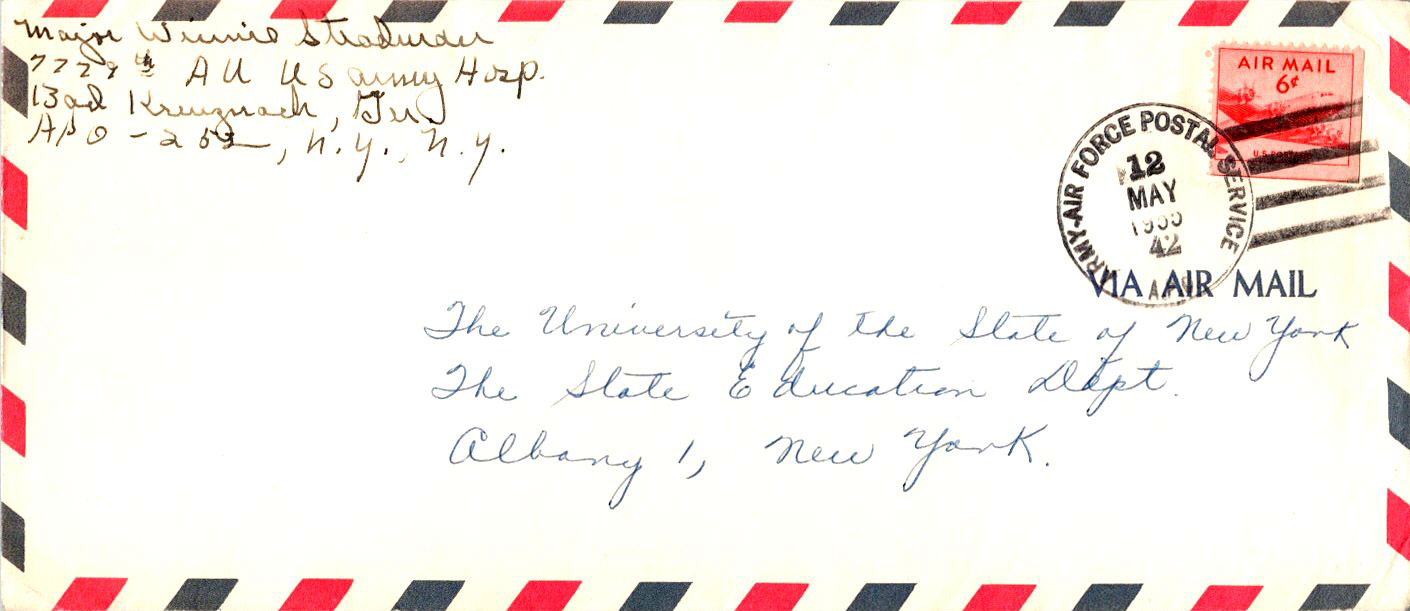 Major Winnie
7729th AU US Army Hosp.
Bad Kreuznach, Ger.
APO - 252, N.Y., N.Y.
AIR MAIL
6¢
U.S. POSTAGE
ARMY-AIR FORCE POSTAL SERVICE
12
MAY
1955
42
VIA AIR MAIL
The University of the State of New York
The State Education Dept.
Albany 1, New York.